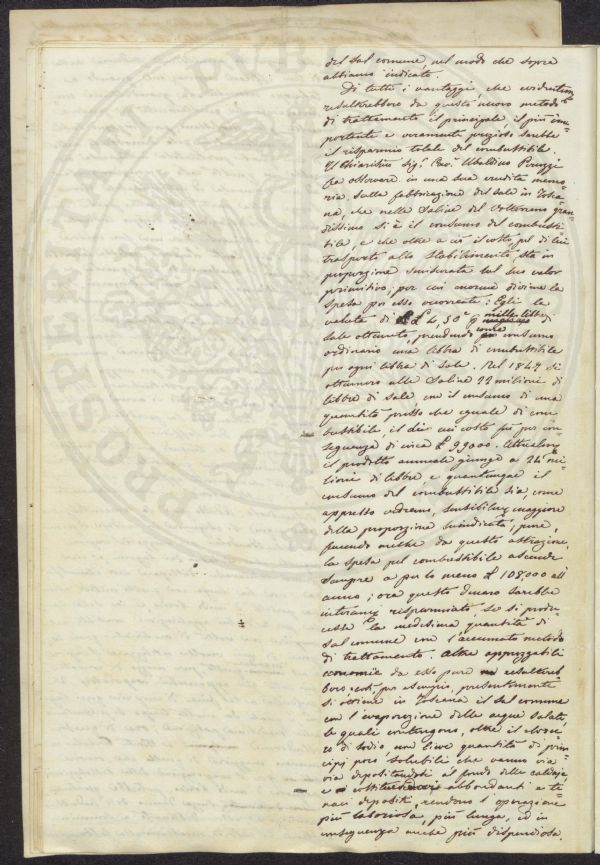 del sal comune, nel modo che sopra
abbiamo indicato.
Di tutti i vantaggi, che evidentem.
resulterebbero da questo nuovo metodo
di trattamento il principale, il più im-
portante e veramente prezioso sarebbe
il risparmio totale del combustibile.
Il Chiarissimo Sig.r Cav.r Ubaldino Peruzzi
fa osservare in una sua erudita memo-
ria, sulla fabbricazione del sale in Tosca-
na, che nelle Saline del Volterrano gran-
dissimo si è il consumo del combusti-
bile, e che oltre a ciò il costo pel di lui
trasporto allo stabilimento, sta in
proporzione smisurata sul suo valor
primitivo; per cui enorme diviene la
spesa per esso occorrente: Egli la
valuta di £ 4,50 p mille libbre di
sale ottenuto, prendendo come consumo
ordinario una libbra di combustibile
per ogni libbra di sale. Nel 1847 si
ottennero alle Saline 22 milioni di
libbre di sale, con il consumo di una
quantità presso che eguale di com-
bustibile, il di cui costo fù per con-
seguenza di circa £ 99000. Attualm.
il prodotto annuale giunge a 24 mi-
lioni di libbre e quantunque il
consumo del combustibile sia, come
appresso vedremo, sensibilm. maggiore
della proporzione suindicata, pure,
facendo anche da questo astrazione,
la spesa pel combustibile ascende
sempre a per lo meno £ 108,000 all'
anno; ora questo denaro sarebbe
interam. risparmiato se si produ-
cesse la medesima quantità di
sal comune con l'accennato metodo
di trattamento. Altre apprezzabili
economie da esso pure resulterеb
bero, così per esempio, presentemente
si ottiene in Toscana il sal comune
con l'evaporazione delle acque salate,
le quali contengono, oltre il cloru-
ro di sodio, non lieve quantità di prin-
cipi poco solubili che vanno via
via depositandosi al fondo delle caldaje
e costituendovi abbondanti e te-
naci depositi, rendono l'operazione
più laboriosa, più lunga, ed in
conseguenza anche più dispendiosa.